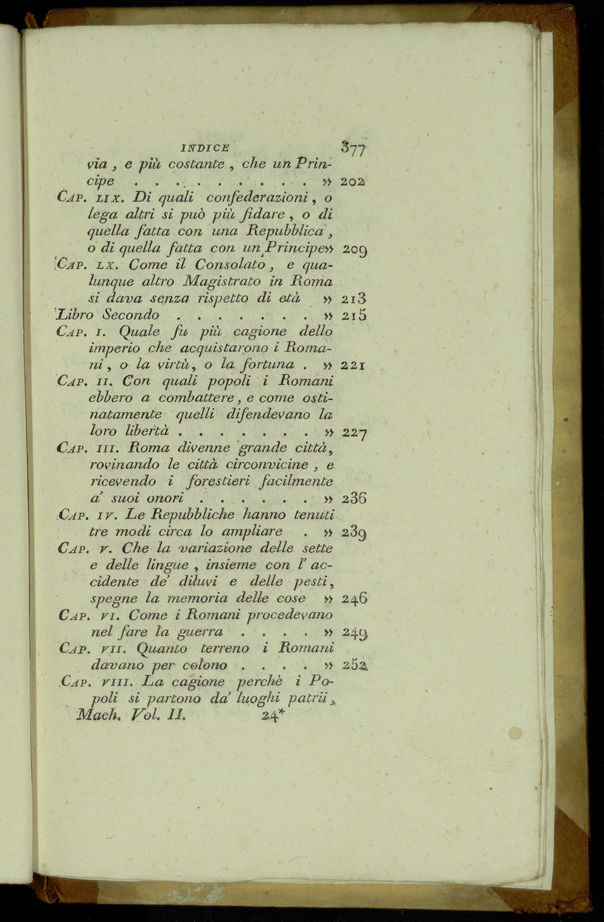 INDICE 377
via, e più costante, che un Prin-
cipe . . . . . . . . . » 202
CAP. LIX. Di quali confederazioni, o
lega altri si può più fidare, o di
quella fatta con una Repubblica,
o di quella fatta con un Principe» 209
CAP. LX. Come il Consolato, e qua-
lunque altro Magistrato in Roma
si dava senza rispetto di età » 213
Libro Secondo . . . . . . . » 215
CAP. I. Quale fu più cagione dello
imperio che acquistarono i Roma-
ni, o la virtù, o la fortuna . » 221
CAP. II. Con quali popoli i Romani
ebbero a combattere, e come osti-
natamente quelli difendevano la
loro libertà . . . . . . . » 227
CAP. III. Roma divenne grande città,
rovinando le città circonvicine, e
ricevendo i forestieri facilmente
a' suoi onori . . . . . . » 236
CAP. IV. Le Repubbliche hanno tenuti
tre modi circa lo ampliare . » 239
CAP. V. Che la variazione delle sette
e delle lingue, insieme con l'ac-
cidente de' diluvi e delle pesti,
spegne la memoria delle cose » 246
CAP. VI. Come i Romani procedevano
nel fare la guerra . . . . » 249
CAP. VII. Quanto terreno i Romani
davano per colono . . . . » 252
CAP. VIII. La cagione perchè i Po-
poli si partono da' luoghi patrii,
Mach. Vol. II. 24*